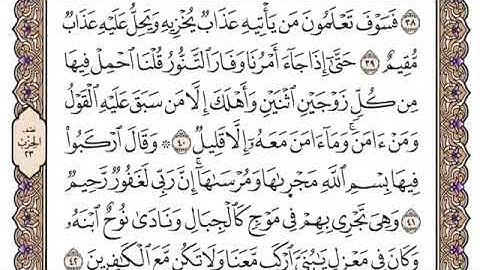 ٣٨ فَسَوْفَ تَعْلَمُونَ مَن يَأْتِيهِ عَذَابٌ يُخْزِيهِ وَيَحِلُّ عَلَيْهِ عَذَابٌ
مُّقِيمٌ ٣٩ حَتَّىٰٓ إِذَا جَآءَ أَمْرُنَا وَفَارَ ٱلتَّنُّورُ قُلْنَا ٱحْمِلْ فِيهَا
مِن كُلٍّ زَوْجَيْنِ ٱثْنَيْنِ وَأَهْلَكَ إِلَّا مَن سَبَقَ عَلَيْهِ ٱلْقَوْلُ
وَمَنْ ءَامَنَۚ وَمَآ ءَامَنَ مَعَهُۥٓ إِلَّا قَلِيلٌ ٤٠ ۞ وَقَالَ ٱرْكَبُوا۟
فِيهَا بِسْمِ ٱللَّهِ مَجْر۪ىٰهَا وَمُرْسَىٰهَآۚ إِنَّ رَبِّى لَغَفُورٌ رَّحِيمٌ
٤١ وَهِىَ تَجْرِى بِهِمْ فِى مَوْجٍ كَٱلْجِبَالِ وَنَادَىٰ نُوحٌ ٱبْنَهُۥ
وَكَانَ فِى مَعْزِلٍ يَـٰبُنَىَّ ٱرْكَب مَّعَنَا وَلَا تَكُن مَّعَ ٱلْكَـٰفِرِينَ ٤٢
نصف
الحزب
٢٣